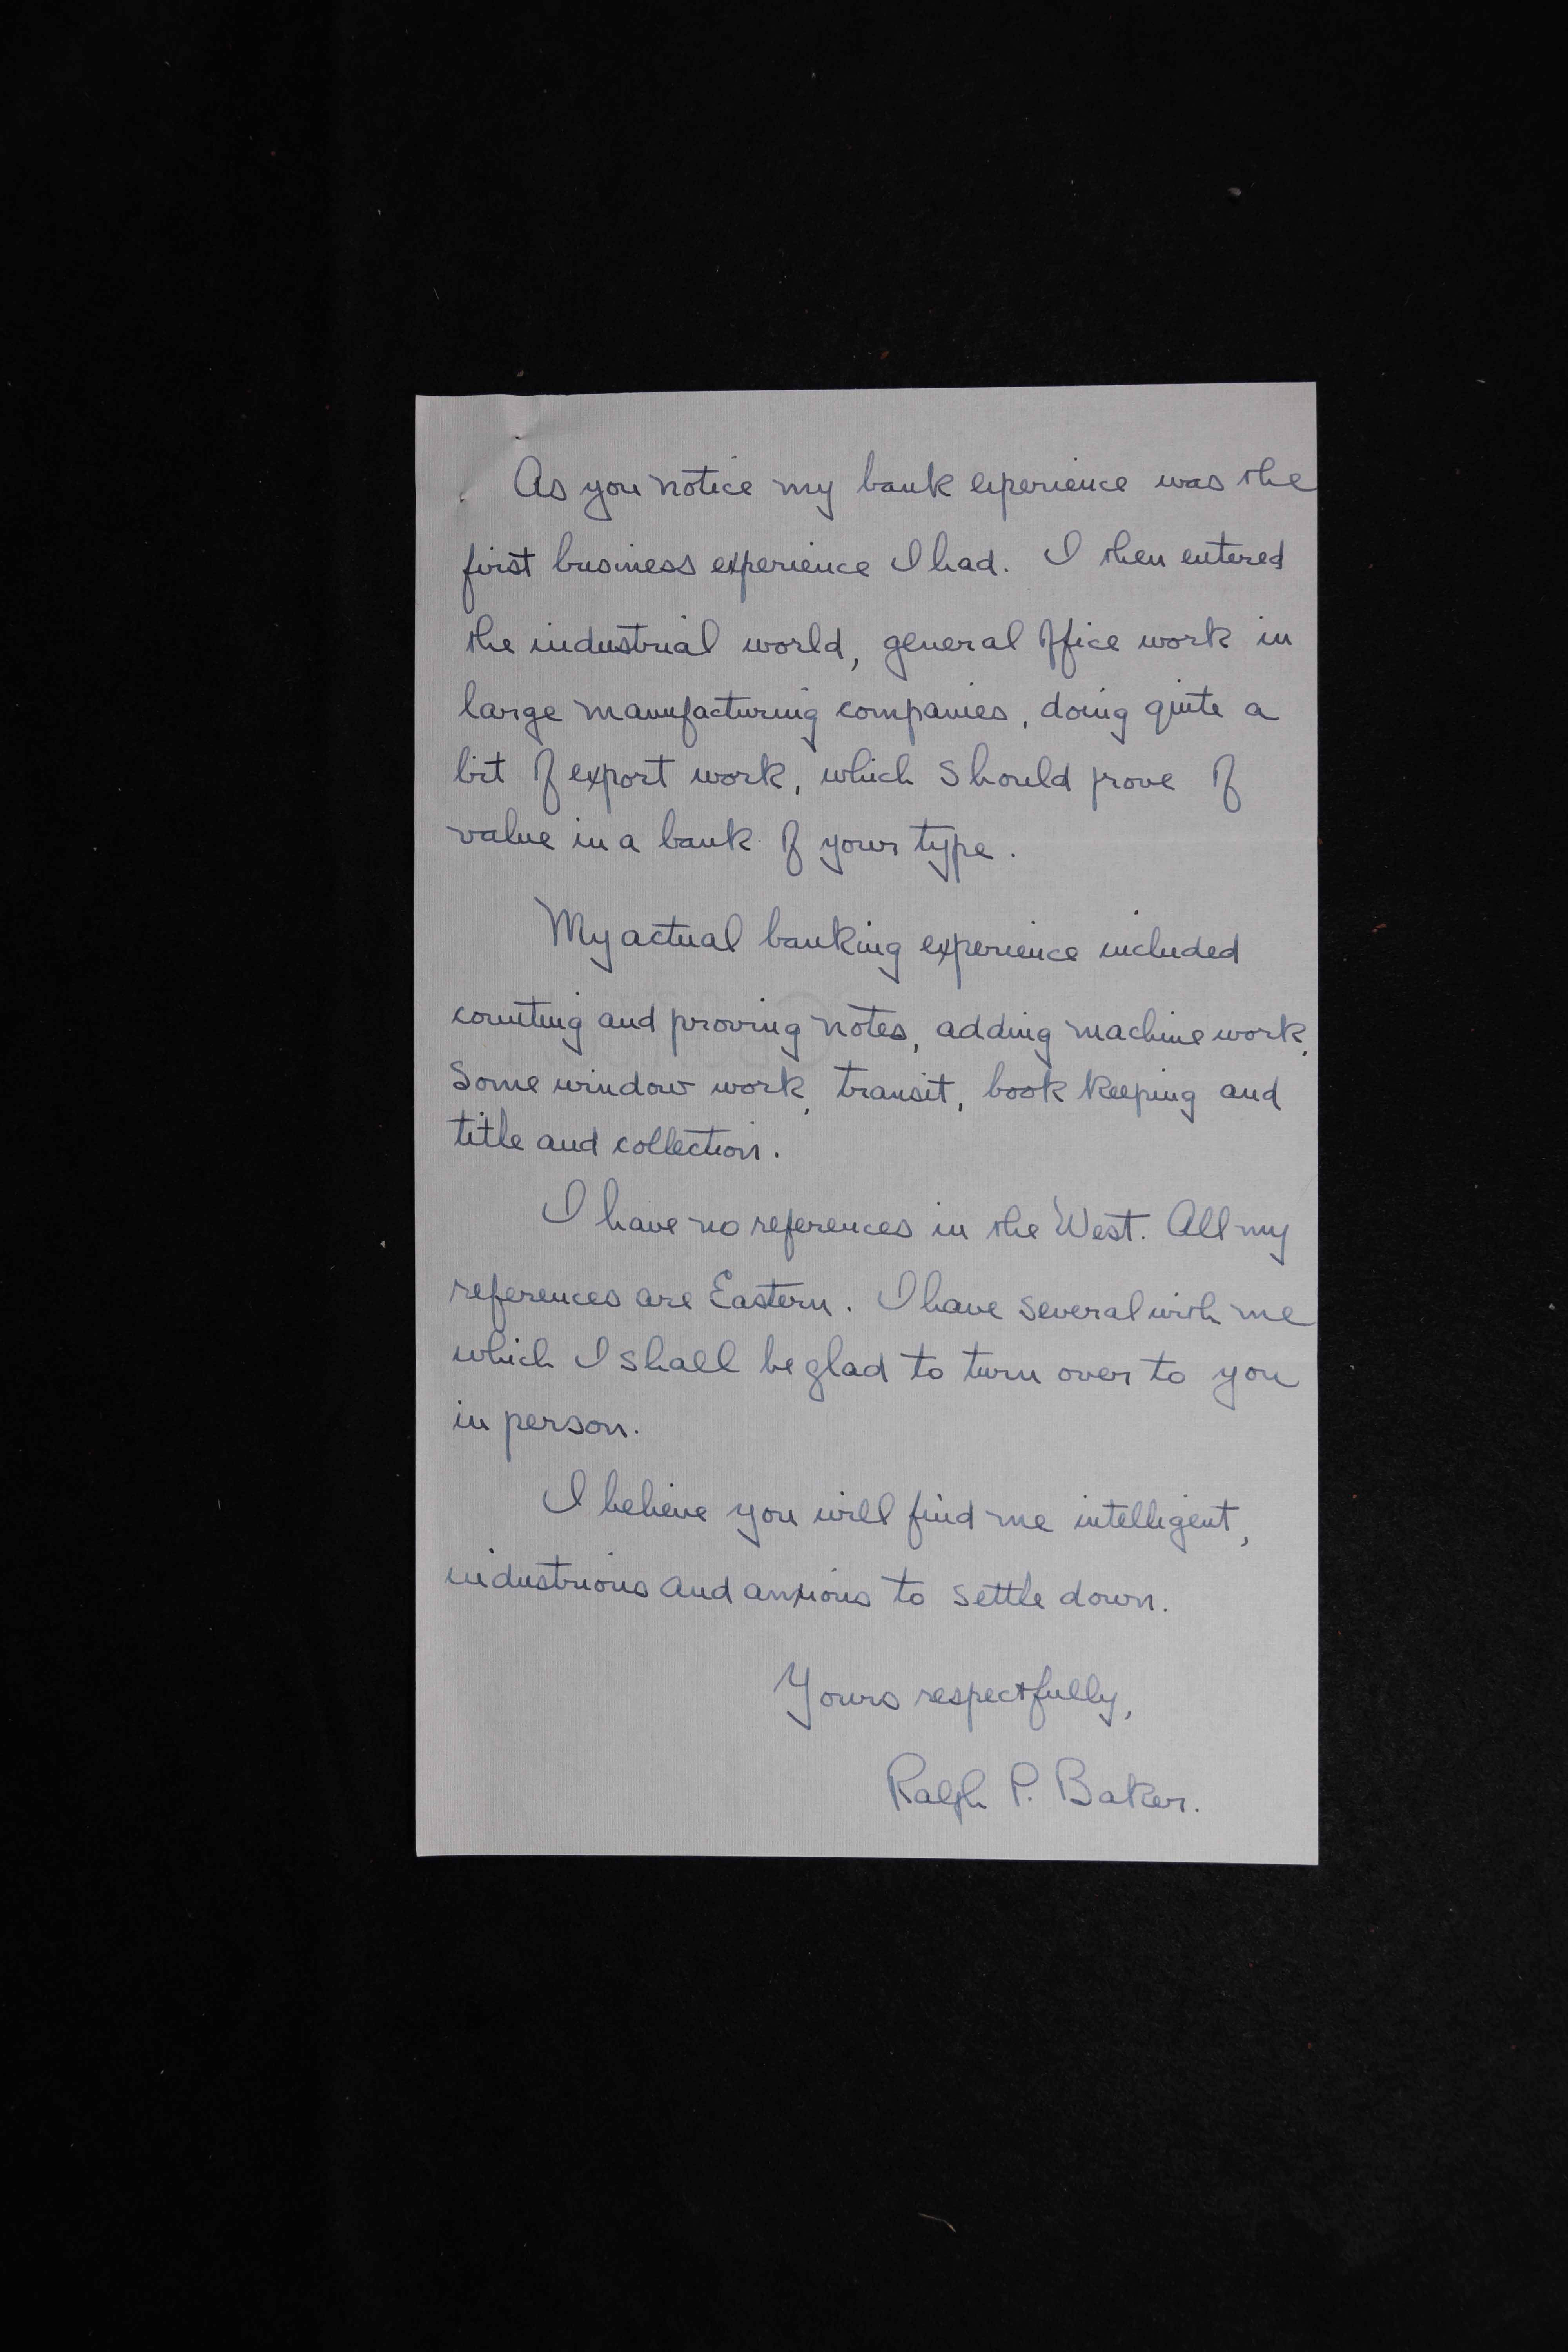 As you notice my bank eperience was the
first business experience I had. I then entered
the industrial world, general office work in
large manufacturing companies, doing quite a
bit of export work, which should prove of
value in a bank of your type.
My actual banking experience included
counting and proving notes, adding machine work,
some window work, transit, book keeping and
title and collection.
I have no references in the West. All my
references are Eastern. I have several with me
which I shall be glad to turn over to you
in person.
I believe you will find me intelligent,
industrious and anxious to settle down.
Yours respectfully,
Ralph P. Baker.